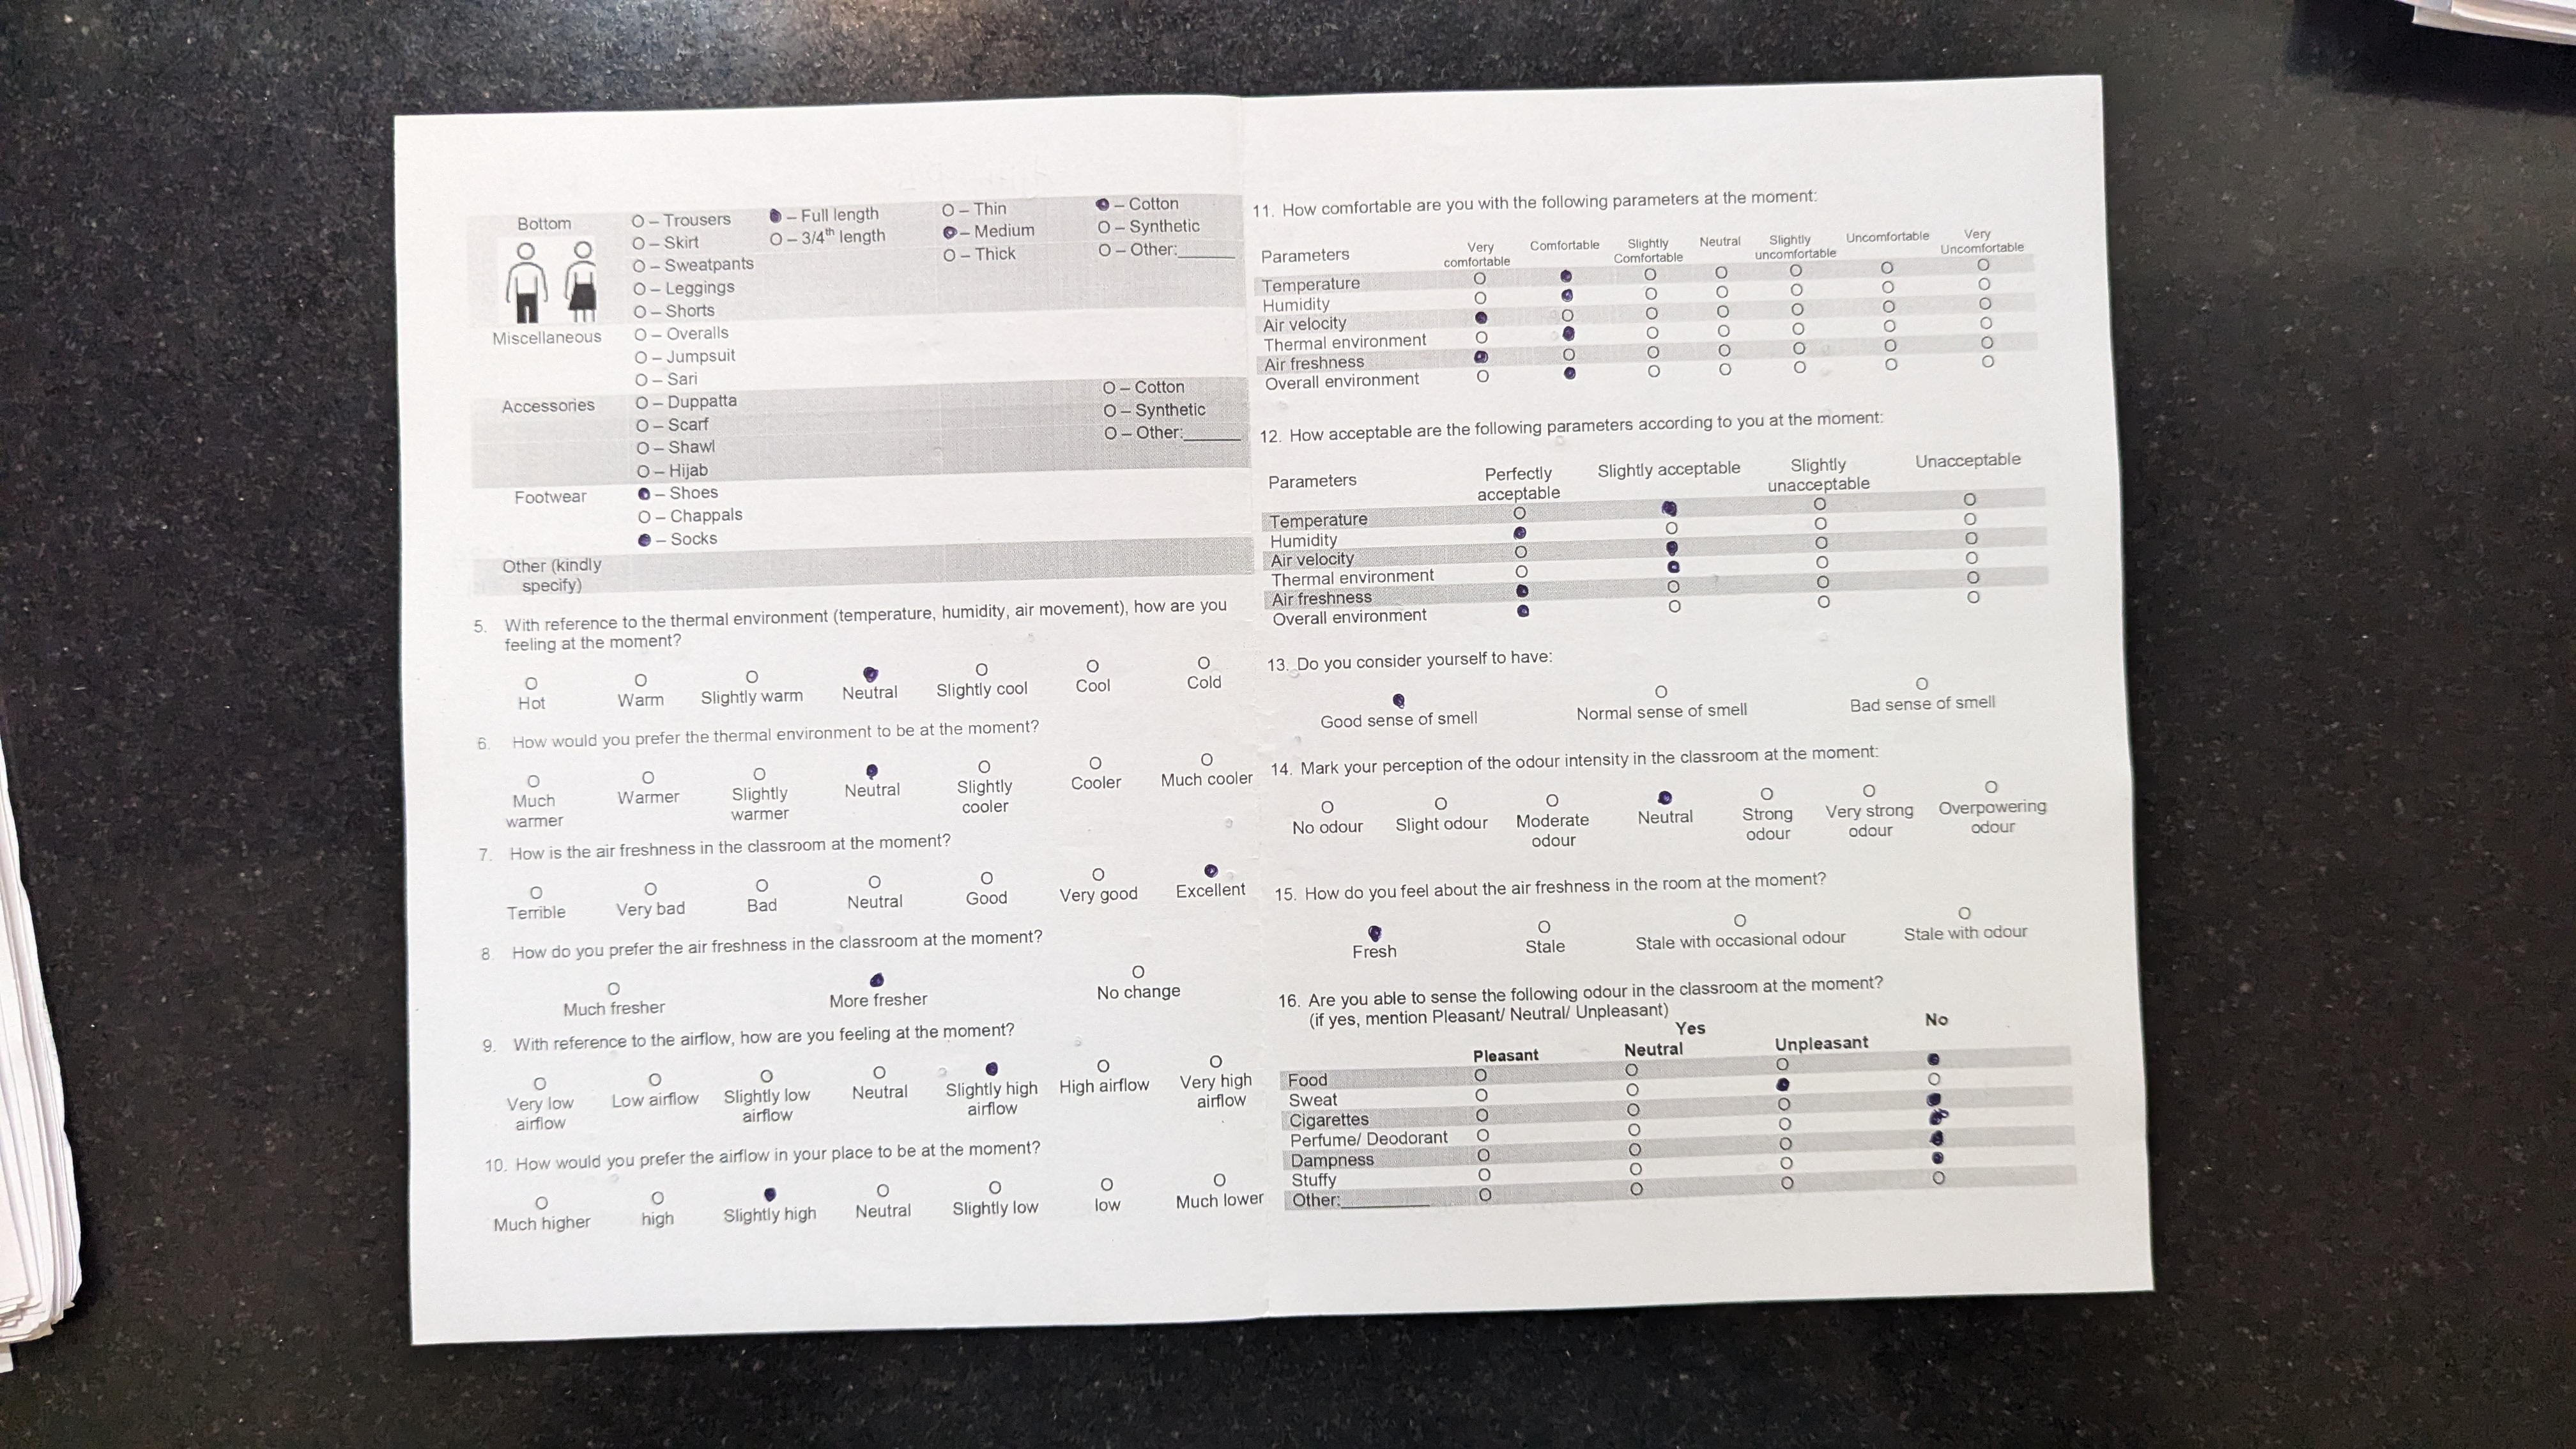 Bottom
O – Trousers
O – Skirt
O – Sweatpants
O – Leggings
O – Shorts
● – Full length
O – 3/4th length
O – Thin
● – Medium
O – Thick
● – Cotton
O – Synthetic
O – Other:______
Miscellaneous
O – Overalls
O – Jumpsuit
O – Sari
Accessories
O – Duppatta
O – Scarf
O – Shawl
O – Hijab
O – Cotton
O – Synthetic
O – Other:______
Footwear
● – Shoes
O – Chappals
● – Socks
Other (kindly
specify)
5. With reference to the thermal environment (temperature, humidity, air movement), how are you
feeling at the moment?
O O O ● O O O
Hot Warm Slightly warm Neutral Slightly cool Cool Cold
6. How would you prefer the thermal environment to be at the moment?
O O O ● O O O
Much warmer Warmer Slightly warmer Neutral Slightly cooler Cooler Much cooler
7. How is the air freshness in the classroom at the moment?
O O O O O O ●
Terrible Very bad Bad Neutral Good Very good Excellent
8. How do you prefer the air freshness in the classroom at the moment?
O ● O
Much fresher More fresher No change
9. With reference to the airflow, how are you feeling at the moment?
O O O O ● O O
Very low airflow Low airflow Slightly low airflow Neutral Slightly high airflow High airflow Very high airflow
10. How would you prefer the airflow in your place to be at the moment?
O O ● O O O O
Much higher high Slightly high Neutral Slightly low low Much lower
11. How comfortable are you with the following parameters at the moment:
Parameters Very comfortable Comfortable Slightly Comfortable Neutral Slightly uncomfortable Uncomfortable Very Uncomfortable
Temperature O ● O O O O O
Humidity O ● O O O O O
Air velocity ● O O O O O O
Thermal environment O ● O O O O O
Air freshness ● O O O O O O
Overall environment O ● O O O O O
12. How acceptable are the following parameters according to you at the moment:
Parameters Perfectly acceptable Slightly acceptable Slightly unacceptable Unacceptable
Temperature O ● O O
Humidity ● O O O
Air velocity O ● O O
Thermal environment O ● O O
Air freshness ● O O O
Overall environment ● O O O
13. Do you consider yourself to have:
● O O
Good sense of smell Normal sense of smell Bad sense of smell
14. Mark your perception of the odour intensity in the classroom at the moment:
O O O ● O O O
No odour Slight odour Moderate odour Neutral Strong odour Very strong odour Overpowering odour
15. How do you feel about the air freshness in the room at the moment?
● O O O
Fresh Stale Stale with occasional odour Stale with odour
16. Are you able to sense the following odour in the classroom at the moment?
(if yes, mention Pleasant/ Neutral/ Unpleasant)
Yes No
Pleasant Neutral Unpleasant
Food O O O ●
Sweat O O ● O
Cigarettes O O O ●
Perfume/ Deodorant O O O ●
Dampness O O O ●
Stuffy O O O ●
Other:__________ O O O O